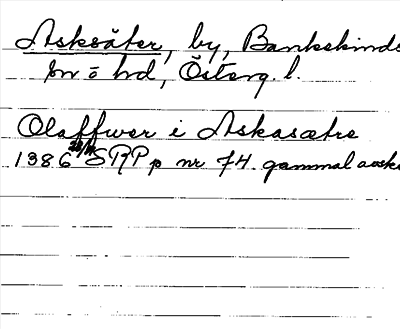 Asksäter, by, Bankekinds
sn o hd, Österg. l.
Olaffwer i Askasætre
1386 SRAP p nr 74. gammal avskr